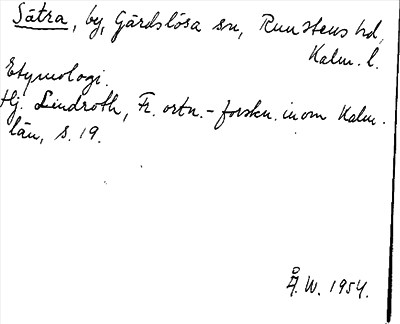 Sätra, by, Gärdslösa sn, Runstens hd,
Kalm. l.
Etymologi.
Hj. Lindroth, Fr. ortn.-forskn. inom Kalm.
län, s. 19.
Å. W. 1954.